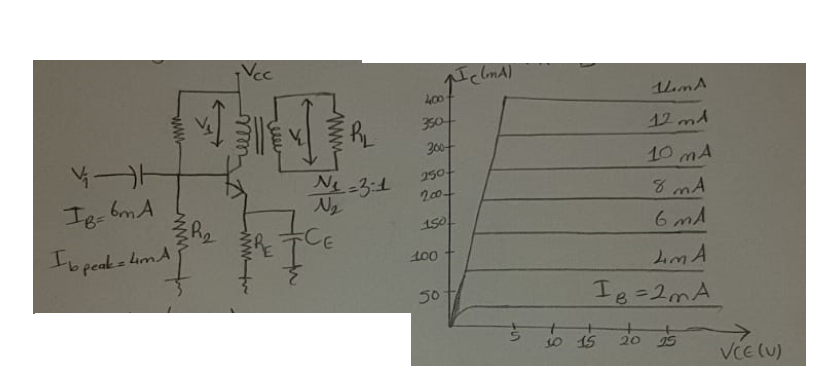 VCC
V1
VL
RL
N1/N2 = 3:1
Vi
IB = 6mA
Ib peak = 4mA
R2
RE
CE
IC(mA)
400
350
300
250
200
150
100
50
14mA
12 mA
10 mA
8 mA
6 mA
4mA
IB = 2mA
5 10 15 20 25
VCE(V)